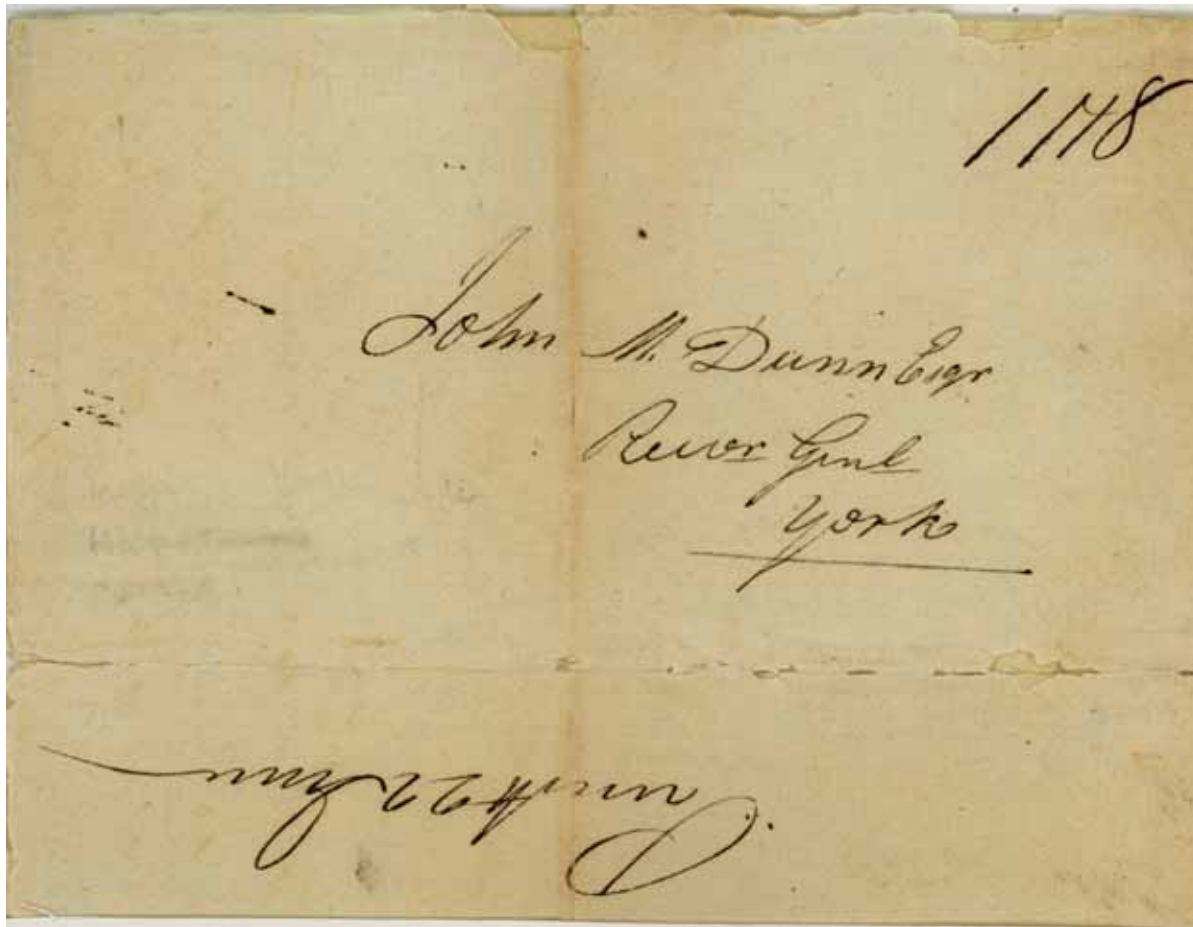 1148
John M. Dunn Esqr
Recvr Genl
York
22 June